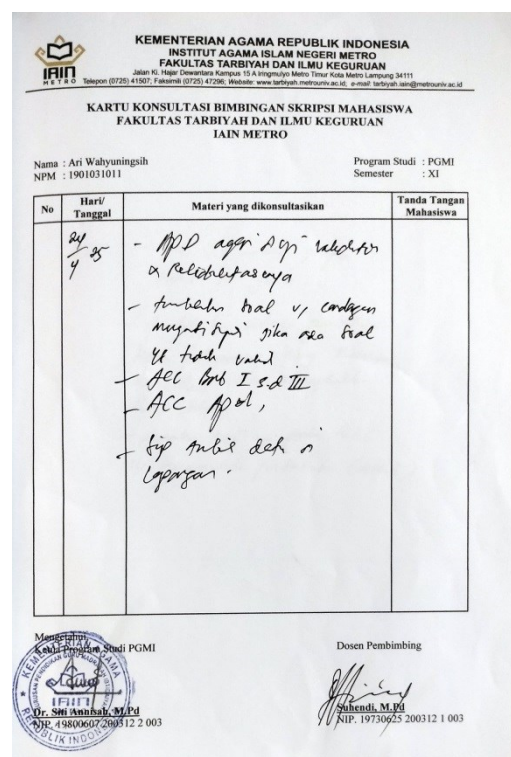 KEMENTERIAN AGAMA REPUBLIK INDONESIA
INSTITUT AGAMA ISLAM NEGERI METRO
FAKULTAS TARBIYAH DAN ILMU KEGURUAN
Jalan Ki. Hajar Dewantara Kampus 15 A Iringmulyo Metro Timur Kota Metro Lampung 34111
Telepon (0725) 41507; Faksimili (0725) 47296; Website: www.tarbiyah.metrouniv.ac.id; e-mail: tarbiyah.iain@metrouniv.ac.id
IAIN
METRO
KARTU KONSULTASI BIMBINGAN SKRIPSI MAHASISWA
FAKULTAS TARBIYAH DAN ILMU KEGURUAN
IAIN METRO
Nama : Ari Wahyuningsih
Program Studi : PGMI
NPM : 1901031011
Semester : XI
No
Hari/
Tanggal
Materi yang dikonsultasikan
Tanda Tangan
Mahasiswa
24/4 25
- APD agar di uji validitas
& Reliabilitasnya
- soal
jika ada soal
yg tidak valid
- ACC Bab I s.d III
- ACC APD,
- data di
lapangan.
Mengetahui,
Ketua Program Studi PGMI
Dosen Pembimbing
KEMENTERIAN AGAMA
IAIN
Dr. Siti Annisah, M.Pd
NIP. 19800607 200312 2 003
Suhendi, M.Pd
NIP. 19730625 200312 1 003